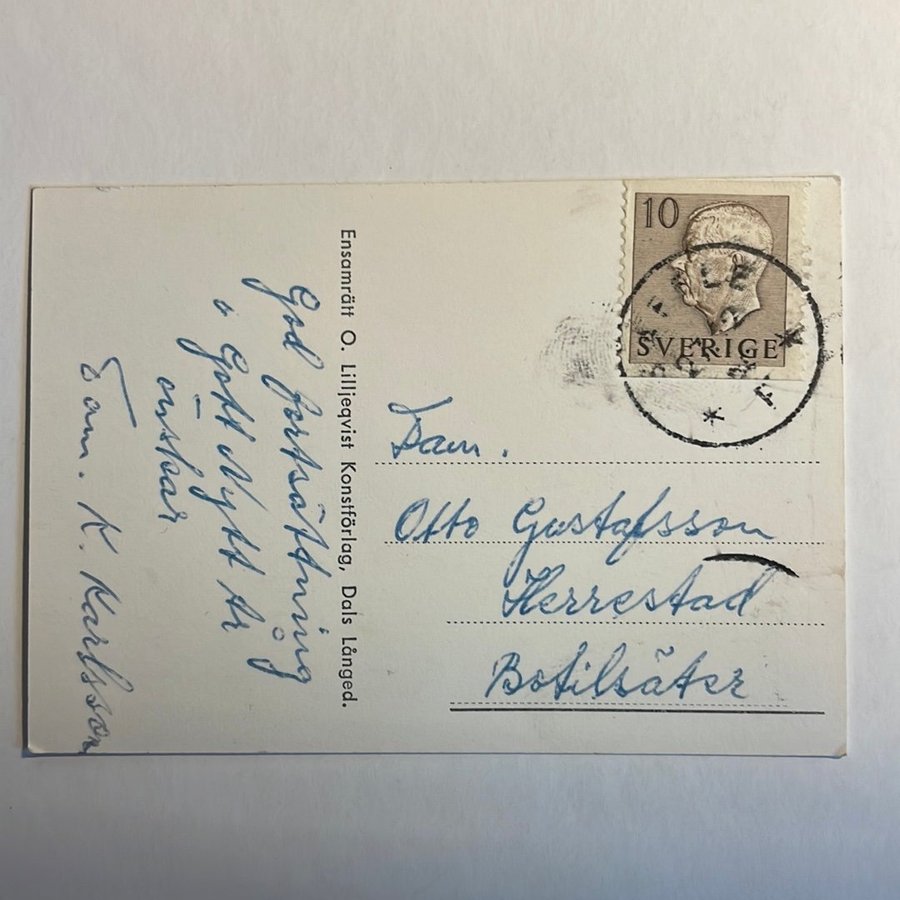 God fortsättning
o Gott Nytt År
önskar
Fam. K. Karlsson
Ensamrätt O. Lilljeqvist Konstförlag, Dals Långed.
10
SVERIGE
Fam.
Otto Gustafsson
Herrestad
Botilsäter